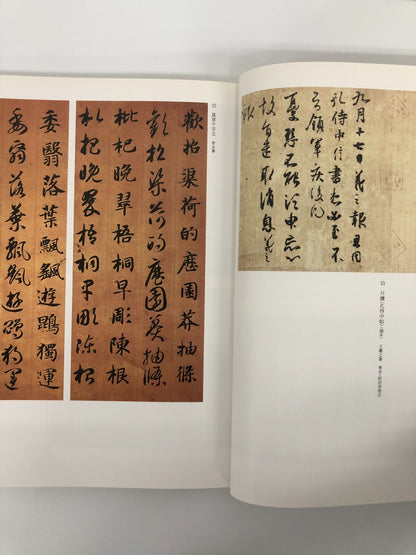 九月十七日羲之報且因
孔侍中信書想必至不
知領軍疾後問
憂懸不能須臾忘心
故旨遣取消息羲之
報
尺牘(孔侍中帖)(摹本) 王羲之筆
真草千字文 智永筆
歡招渠荷的歷園莽抽條
歡招渠荷的歷園莽抽條
枇杷晚翠梧桐早彫陳根
枇杷晚翠梧桐早彫陳根
委翳落葉飄颻遊鵾獨運
委翳落葉飄颻遊鵾獨運